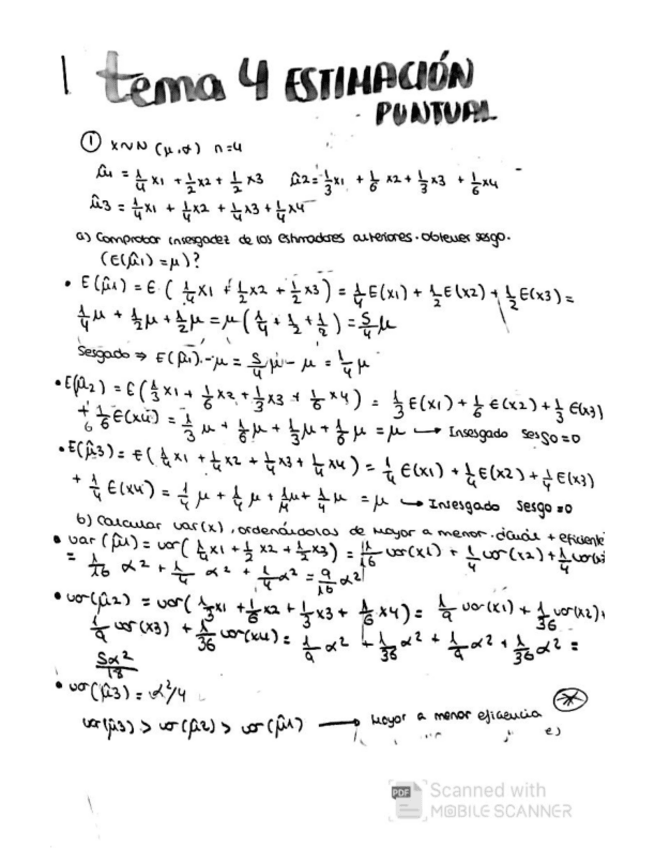 tema 4 ESTIMACIÓN
PUNTUAL
① X~N (μ,α) n=4
μ̂1 = 1/4 x1 + 1/2 x2 + 1/2 x3 μ̂2 = 1/3 x1 + 1/6 x2 + 1/3 x3 + 1/6 x4
μ̂3 = 1/4 x1 + 1/4 x2 + 1/4 x3 + 1/4 x4
a) Comprobar insesgadez de los estimadores anteriores. Obtener sesgo.
(E(μ̂1) = μ)?
• E(μ̂1) = E ( 1/4 x1 + 1/2 x2 + 1/2 x3 ) = 1/4 E(x1) + 1/2 E(x2) + 1/2 E(x3) =
1/4 μ + 1/2 μ + 1/2 μ = μ ( 1/4 + 1/2 + 1/2 ) = 5/4 μ
Sesgado ⇒ E(μ̂1) - μ = 5/4 μ - μ = 1/4 μ
• E(μ̂2) = E ( 1/3 x1 + 1/6 x2 + 1/3 x3 + 1/6 x4 ) = 1/3 E(x1) + 1/6 E(x2) + 1/3 E(x3)
+ 1/6 E(x4) = 1/3 μ + 1/6 μ + 1/3 μ + 1/6 μ = μ → Insesgado sesgo=0
• E(μ̂3) = E ( 1/4 x1 + 1/4 x2 + 1/4 x3 + 1/4 x4 ) = 1/4 E(x1) + 1/4 E(x2) + 1/4 E(x3)
+ 1/4 E(x4) = 1/4 μ + 1/4 μ + 1/4 μ + 1/4 μ = μ → Insesgado sesgo=0
b) Calcular var(x), ordenándolas de mayor a menor. ¿Cuál + eficiente
• var(μ̂1) = var( 1/4 x1 + 1/2 x2 + 1/2 x3 ) = 1/16 var(x1) + 1/4 var(x2) + 1/4 var(x3)
= 1/16 α² + 1/4 α² + 1/4 α² = 9/16 α²
• var(μ̂2) = var( 1/3 x1 + 1/6 x2 + 1/3 x3 + 1/6 x4 ) = 1/9 var(x1) + 1/36 var(x2) +
1/9 var(x3) + 1/36 var(x4) = 1/9 α² + 1/36 α² + 1/9 α² + 1/36 α² =
5α²/18
• var(μ̂3) = α²/4
var(μ̂3) > var(μ̂2) > var(μ̂1) → mayor a menor eficiencia
PDF Scanned with
MOBILE SCANNER